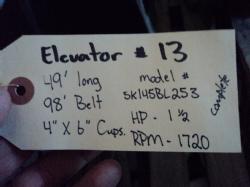 Elevator # 13
49' long
98' Belt
4" X 6" Cups.
model #
SK145BL253
HP - 1 1/2
RPM - 1720
complete